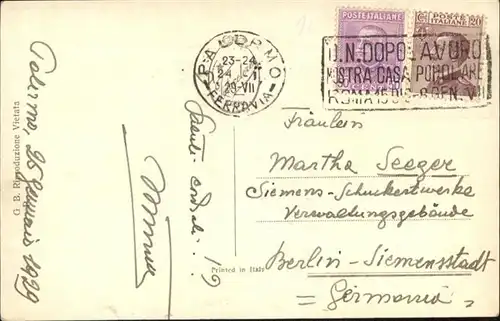 Palermo, 25 Gennaio 1929
G. B. Riproduzione Vietata
Saluti cordiali!
Printed in Italy
POSTE ITALIANE
POSTE ITALIANE
20
PALERMO
23-24
24 I
29-VII
FERROVIA
O.N. DOPOLAVORO
MOSTRA CASA POPOLARE
ROMA 15 DIC. 8 GEN. VII
Fräulein
Martha Seeger
Siemens-Schuckertwerke
Verwaltungsgebäude
Berlin-Siemensstadt
= Germania =